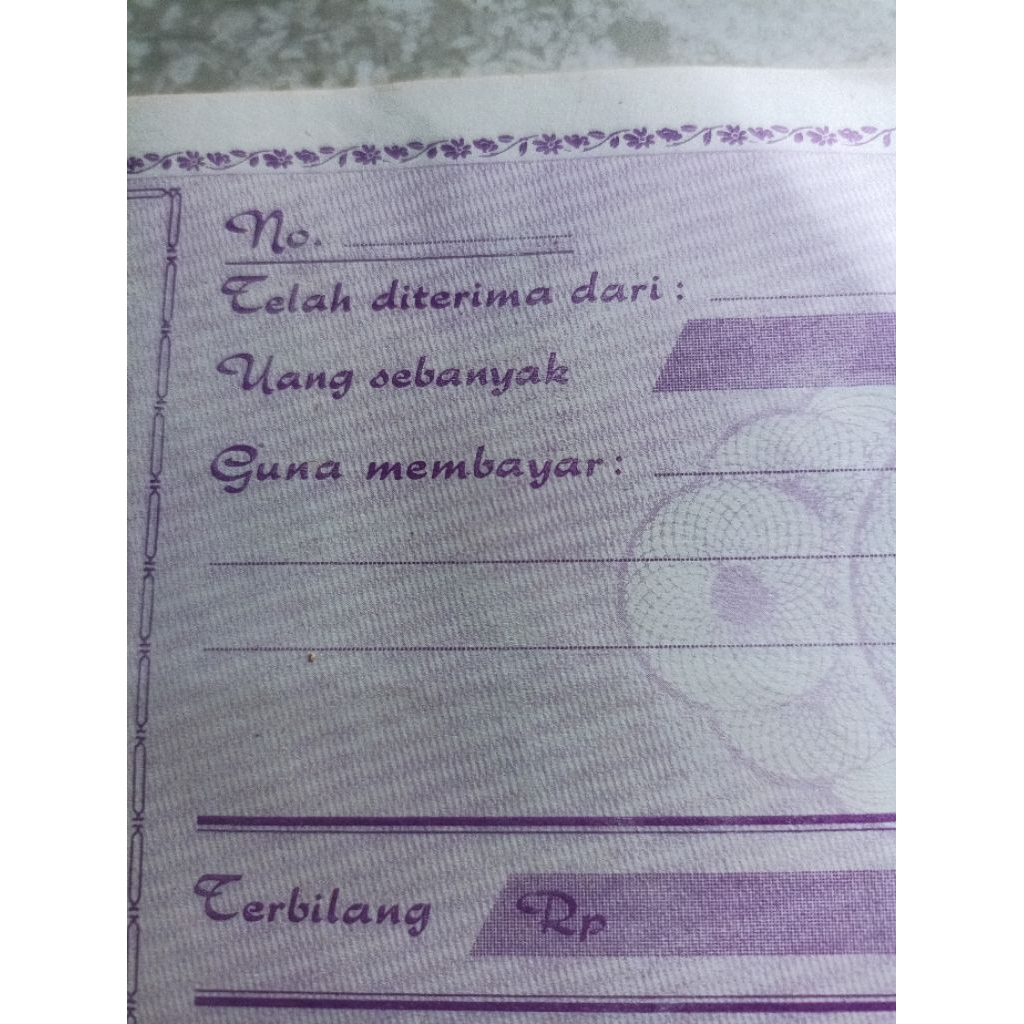 No.
Telah diterima dari :
Uang sebanyak
Guna membayar :
Terbilang Rp